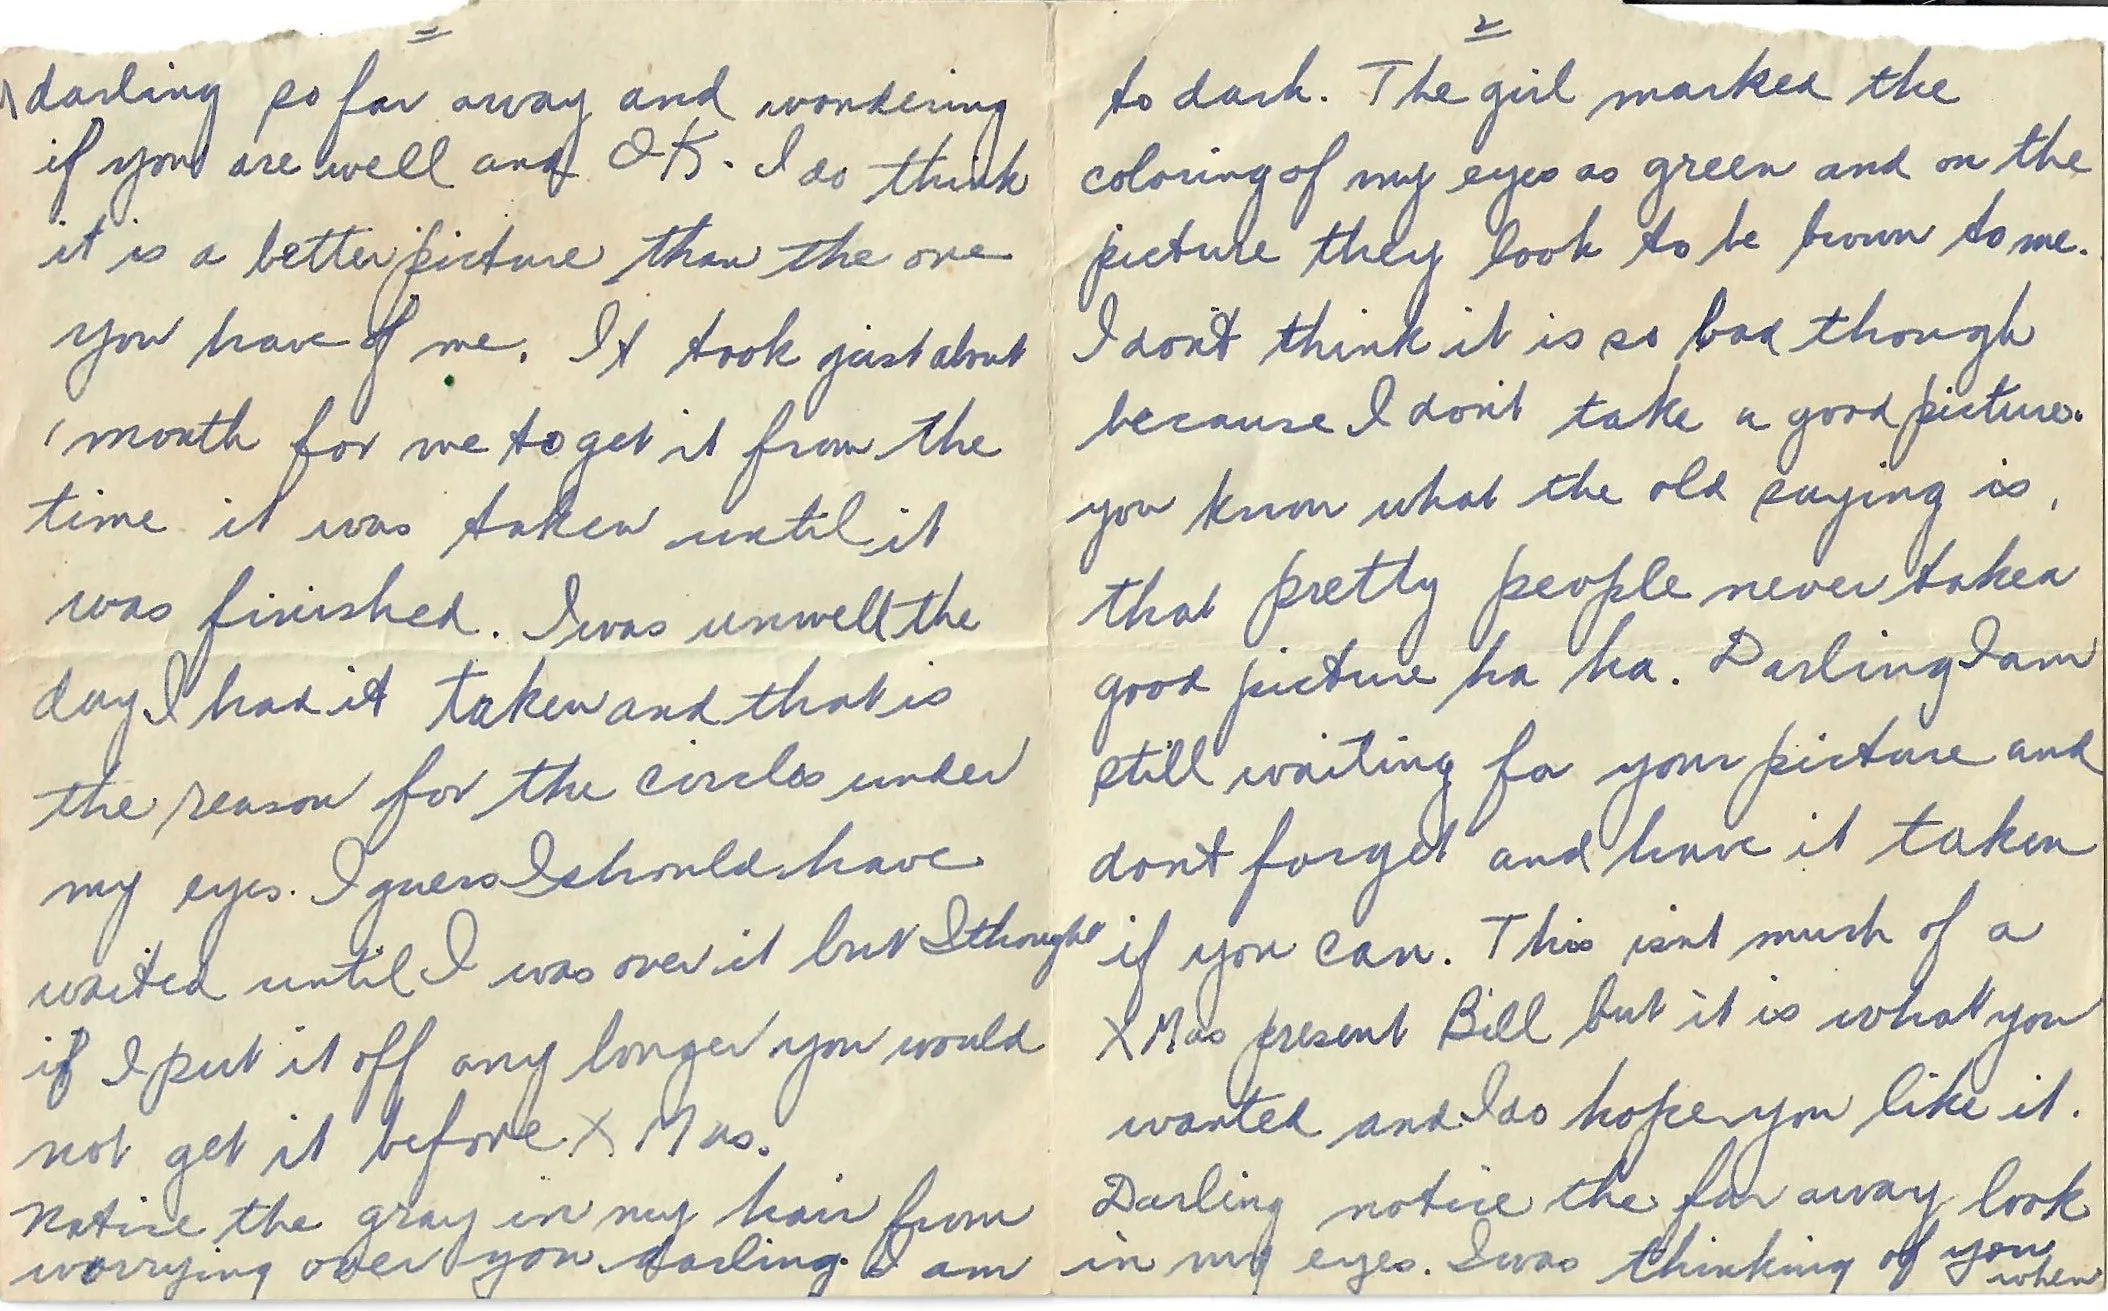 darling so far away and wondering
if you are well and O.K. I do think
it is a better picture than the one
you have of me. It took just about
1 month for me to get it from the
time it was taken until it
was finished. I was unwell the
day I had it taken and that is
the reason for the circles under
my eyes. I guess I should have
waited until I was over it but I thought
if I put it off any longer you would
not get it before X Mas.
Notice the gray in my hair from
worrying over you darling. I am
2
to dark. The girl marked the
coloring of my eyes as green and on the
picture they look to be brown to me.
I don't think it is so bad though
because I don't take a good picture.
you know what the old saying is,
that pretty people never taken
good picture ha ha. Darling I am
still waiting for your picture and
dont forget and have it taken
if you can. This isnt much of a
X Mas present Bill but it is what you
wanted and I do hope you like it.
Darling notice the far away look
in my eyes. I was thinking of you when